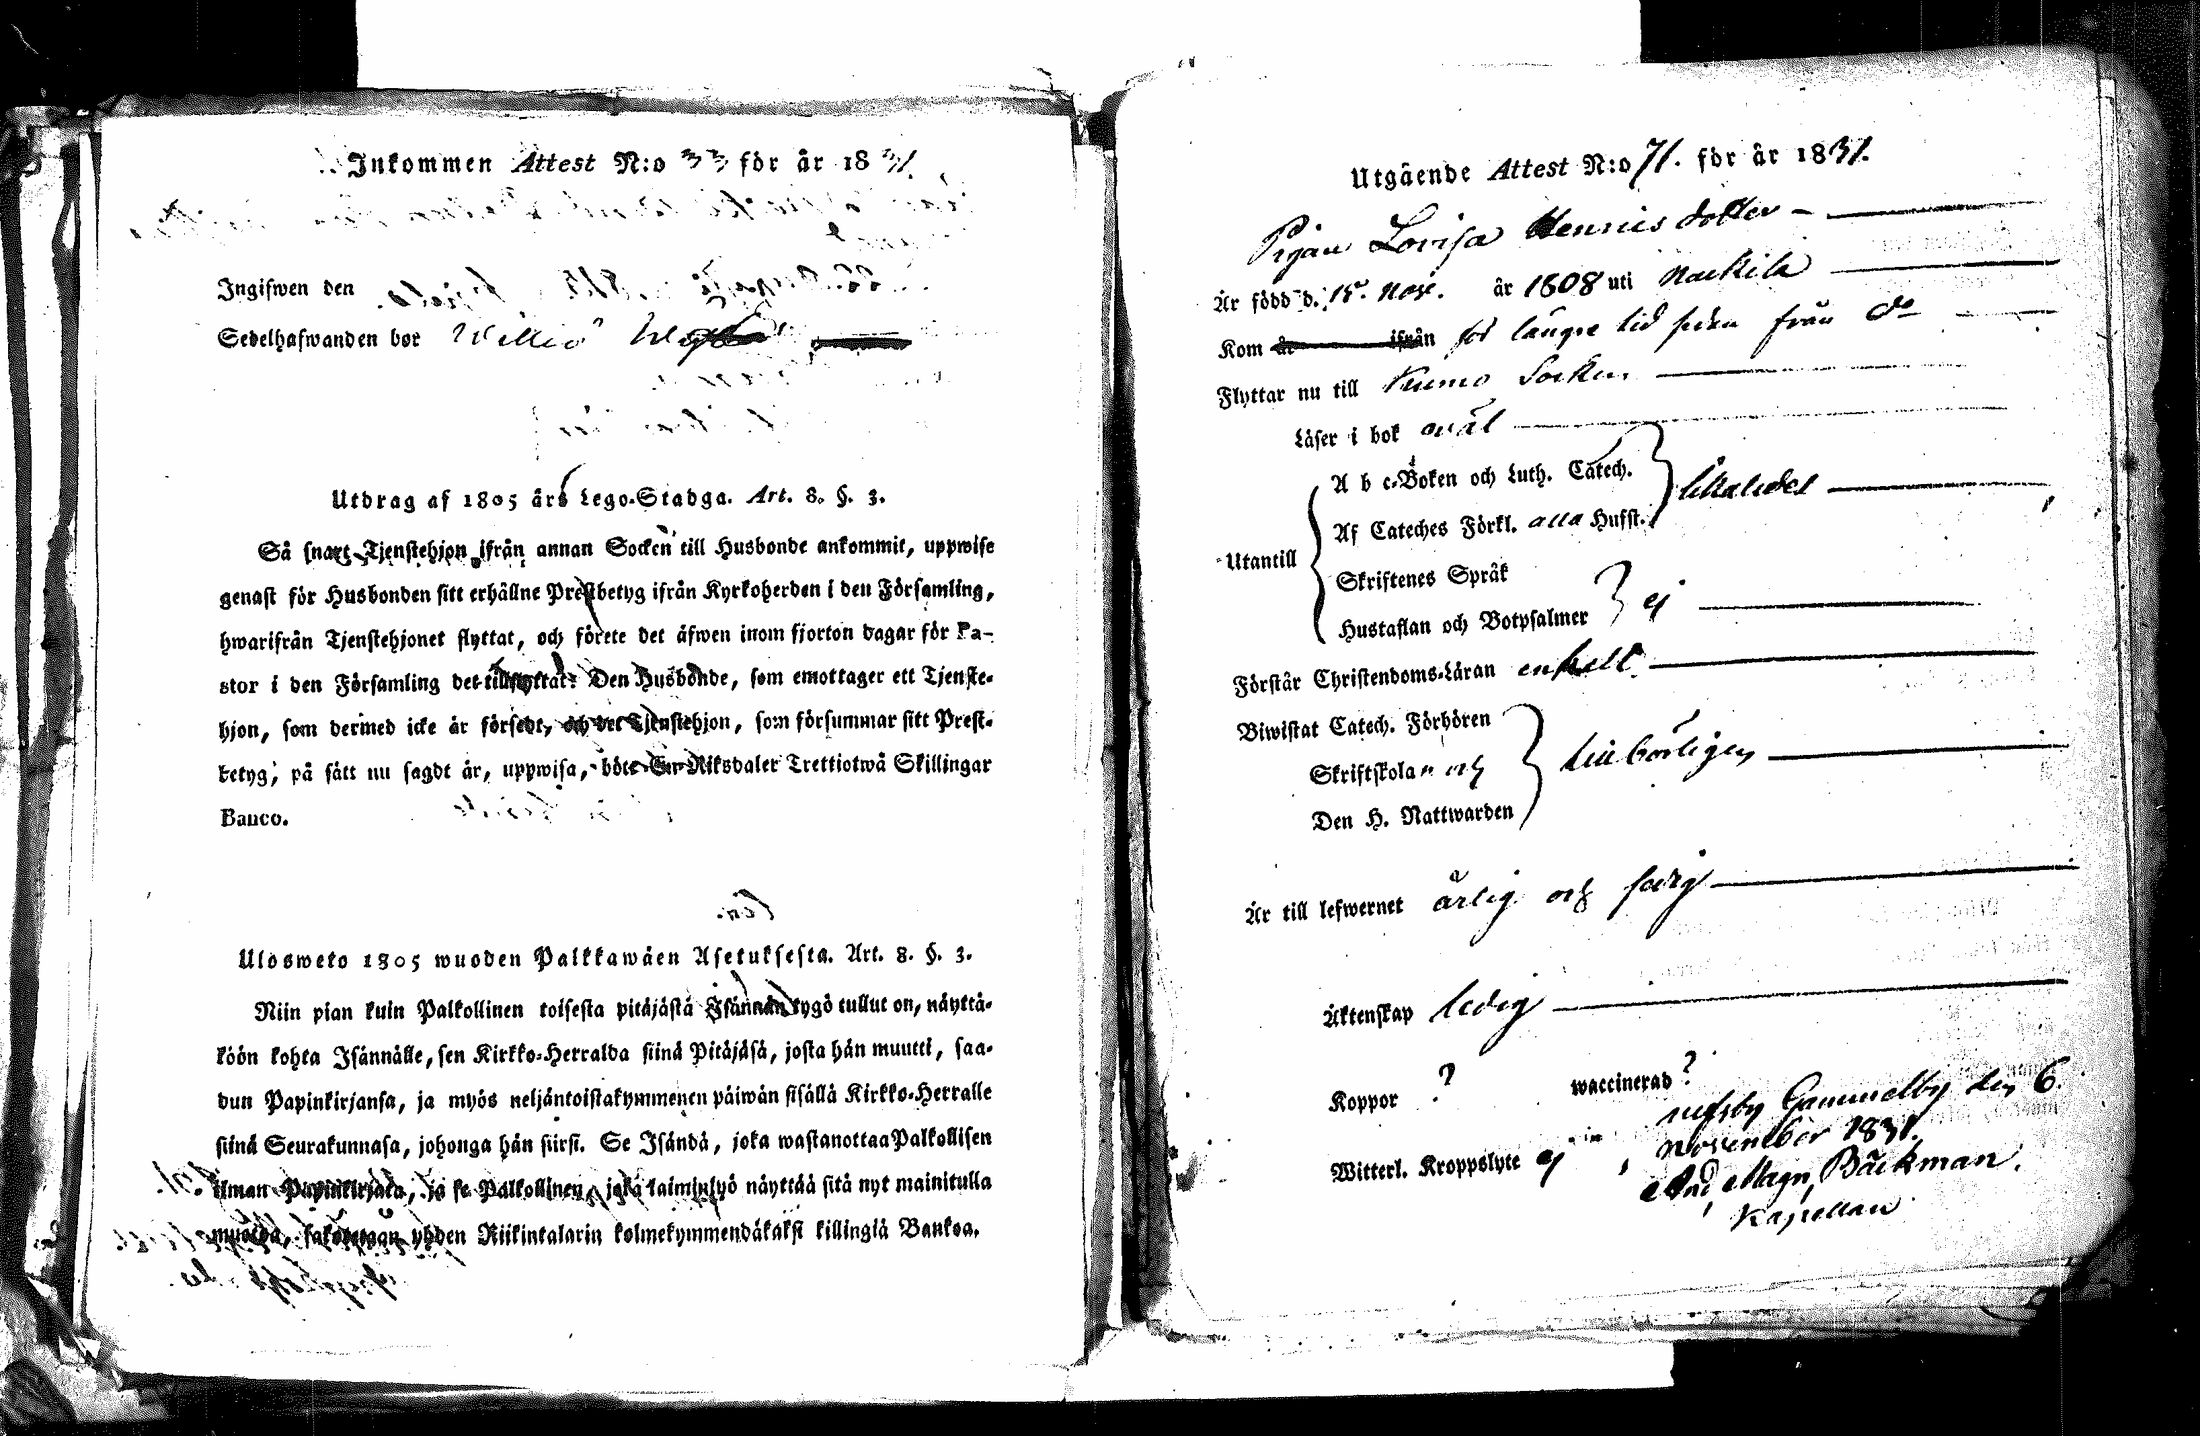 Inkommen Attest N:o 33 för år 1831.
Ingifwen den
Sedelhafwanden bor
Utdrag af 1805 års Lego-Stadga. Art. 8. §. 3.
Så snart Tjenstehjon ifrån annan Socken till Husbonde ankommit, uppwise
genast för Husbonden sitt erhållne Prestbetyg ifrån Kyrkoherden i den Församling,
hwarifrån Tjenstehjonet flyttat, och förete det äfwen inom fjorton dagar för Pa-
stor i den Församling det tillflyttat: Den Husbonde, som emottager ett Tjenste-
hjon, som dermed icke är försedt, och det Tjenstehjon, som försummar sitt Prest-
betyg, på sätt nu sagdt är, uppwisa, böte En Riksdaler Trettiotwå Skillingar
Banco.
Ulosweto 1805 wuoden Palkkawäen Asetuksesta. Art. 8. §. 3.
Niin pian kuin Palkollinen toisesta pitäjästä Isännän tygö tullut on, näyttä-
köön kohta Isännälle, sen Kirkko-Herralda siinä Pitäjäsä, josta hän muutti, saa-
dun Papinkirjansa, ja myös neljäntoistakymmenen päiwän sisällä Kirkko-Herralle
siinä Seurakunnasa, johonga hän siirsi. Se Isändä, joka wastanottaa Palkollisen
ilman Papinkirjata, ja se Palkollinen, joka laiminlyö näyttää sitä nyt mainitulla
muodda, sakotetaan yhden Riikintalarin kolmekymmendäkaksi killingiä Bankoa.
Utgående Attest N:o 71. för år 1831.
Pigan Lovisa Henricsdotter
Är född d. 15. Nov. år 1808 uti Nackila
Kom år ifrån för längre tid sedan från do
Flyttar nu till Kumo Socken
Läser i bok owäl
A b c-Boken och Luth. Catech.
Af Cateches Förkl. alla Hufst. likaledes
Utantill
Skriftenes Språk
Hustaflan och Botpsalmer ej
Förstår Christendoms-Läran enkelt
Biwistat Catech. Förhören
Skriftskolan och
Den H. Nattwarden tillbörligen
Är till lefwernet ärlig och sedig
Äktenskap ledig
Koppor ? waccinerad ?
Witterl. Kroppslyte ej
Ulfsby Gammelby den 6.
November 1831.
And. Magn. Bäckman.
Kapellan